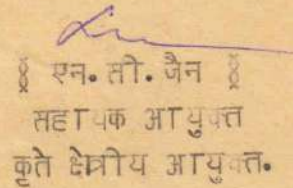 § एन. सी. जैन §
सहायक आयुक्त
कृते क्षेत्रीय आयुक्त.